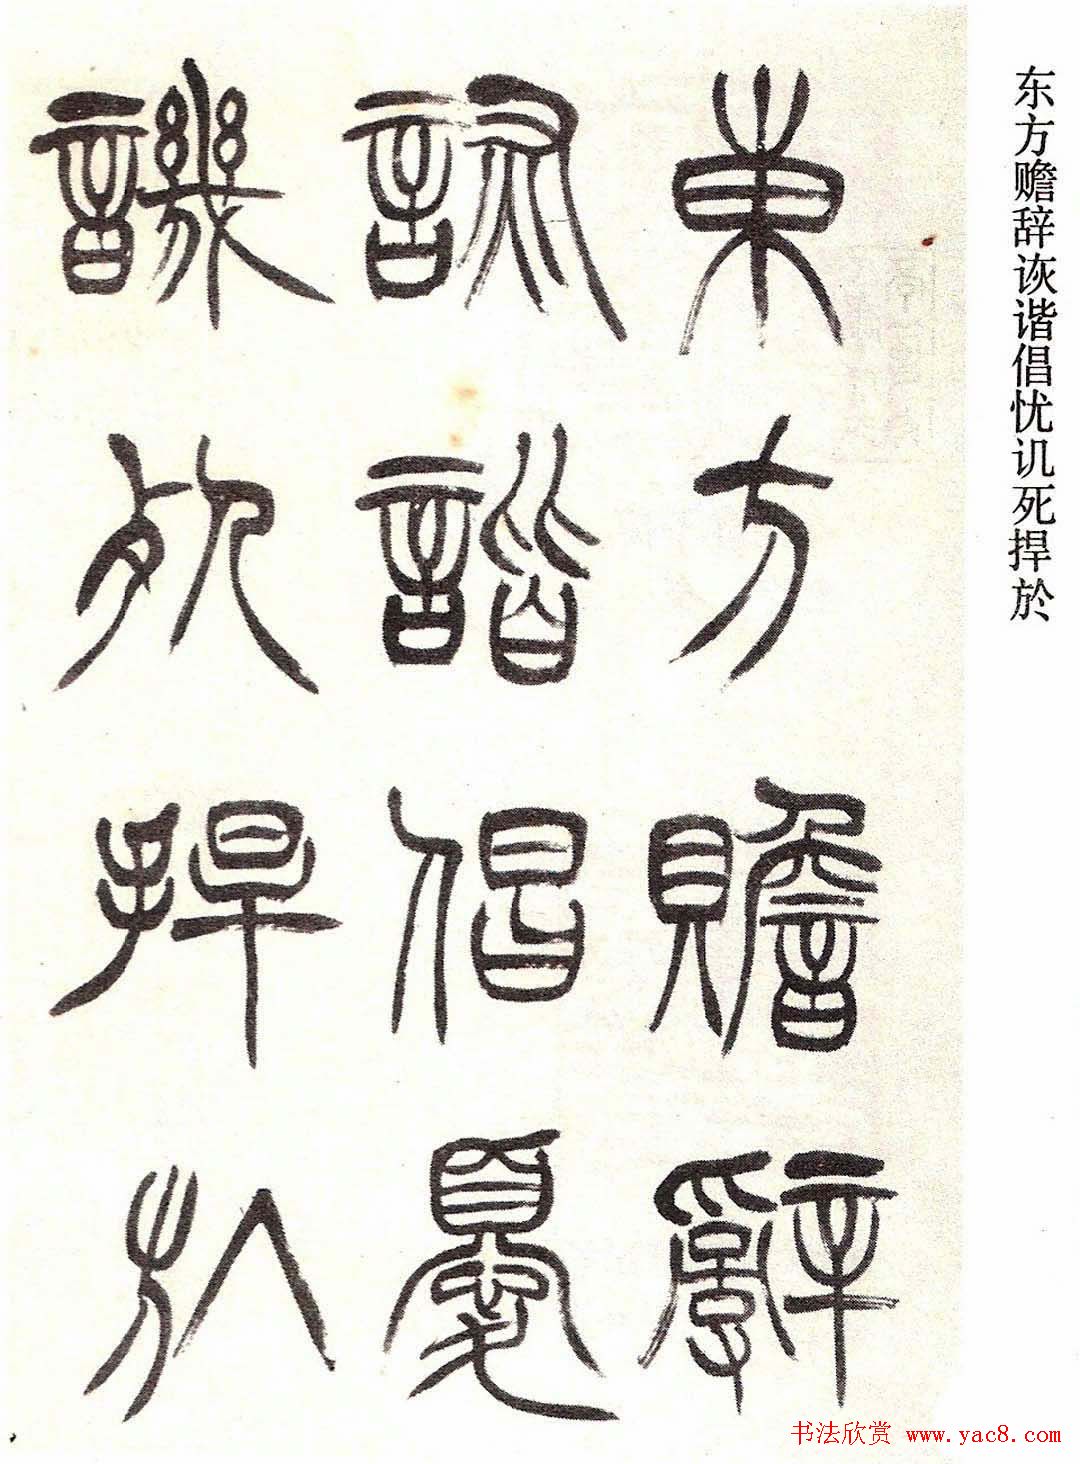 东方赡辞诙谐倡忧讥死捍於
東方贍辭
詼諧倡憂
譏死捍於
书法欣赏 www.yac8.com